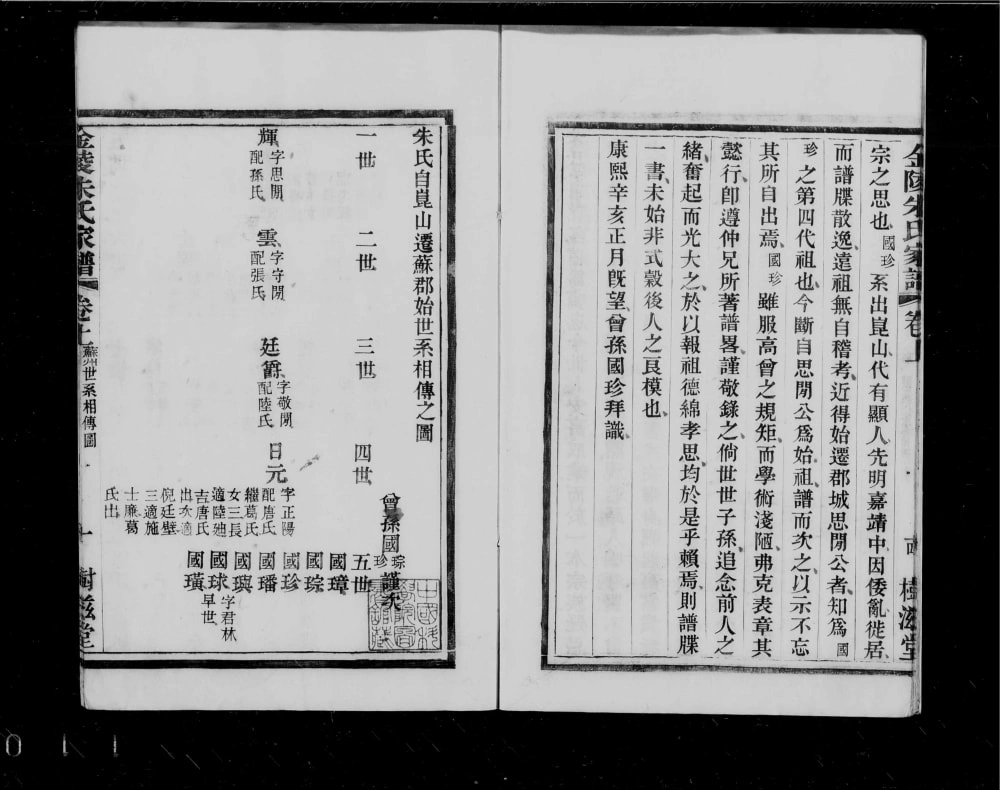 金陵朱氏家譜 卷上 樹滋堂
宗之思也、國珍系出崑山、代有顯人、先明嘉靖中因倭亂徙居、
而譜牒散逸、遠祖無自稽考、近得始遷郡城思閒公者、知爲國
珍之第四代祖也、今斷自思閒公爲始祖、譜而次之、以示不忘
其所自出焉、國珍雖服高曾之規矩、而學術淺陋、弗克表章其
懿行、卽遵仲兄所著譜畧、謹敬錄之、倘世世子孫、追念前人之
緒、奮起而光大之、於以報祖德綿孝思、均於是乎賴焉、則譜牒
一書、未始非式穀後人之良模也、
康熙辛亥正月旣望、曾孫國珍拜識、
朱氏自崑山遷蘇郡始世系相傳之圖
曾孫國琮珍謹次
一世 二世 三世 四世 五世
輝、字思閒、配孫氏、
雲、字守閒、配張氏、
廷爵、字敬閒、配陸氏
日元
字正陽
配唐氏
繼葛氏
女三長
適陸廸
吉唐氏
出次適
倪廷璧
三適施
士廉葛
氏出
國璋
國琮
國珍
國璠
國璵
國球、字君林、早世、
國璜
金陵朱氏家譜 卷上 蘇州世系相傳圖 十 樹滋堂